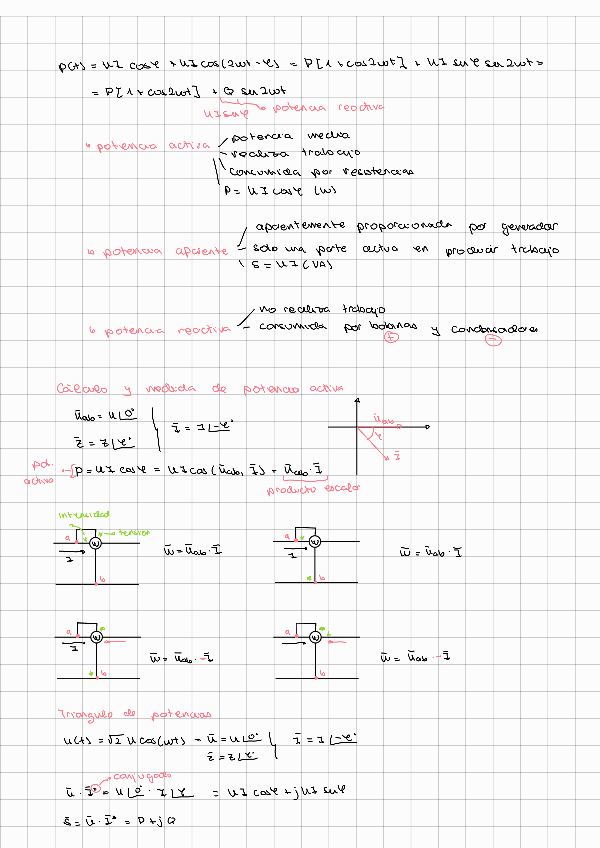 p(t) = UI cosφ + UI cos(2ωt - φ) = P[1 + cos2ωt] + UI senφ sen2ωt =
= P[1 + cos2ωt] + Q sen2ωt
UIsenφ → potencia reactiva
↳ potencia activa
potencia media
realiza trabajo
consumida por resistencias
P = UI cosφ (W)
aparentemente proporcionada por generador
↳ potencia aparente – solo una parte activa en producir trabajo
S = UI (VA)
no realiza trabajo
↳ potencia reactiva – consumida por bobinas y condensadores
+ −
Cálculo y medida de potencia activa
Ūab = U∟0° Ī = I∟-φ°
Z̄ = Z∟φ°
Ūab φ Ī
pot. activa P = UI cosφ = UI cos(Ūab, Ī) = Ūab · Ī
producto escalar
intensidad
tensión
a W I b W̄ = Ūab · Ī
a W I b W̄ = Ūab · Ī
a W I b W̄ = Ūab · -Ī
a W I b W̄ = Ūab · -Ī
Triángulo de potencias
u(t) = √2 U cos(ωt) → Ū = U∟0° Ī = I∟-φ°
Z̄ = Z∟φ°
conjugado
Ū · Ī* = U∟0° · I∟φ = UI cosφ + jUI senφ
S̄ = Ū · Ī* = P + jQ